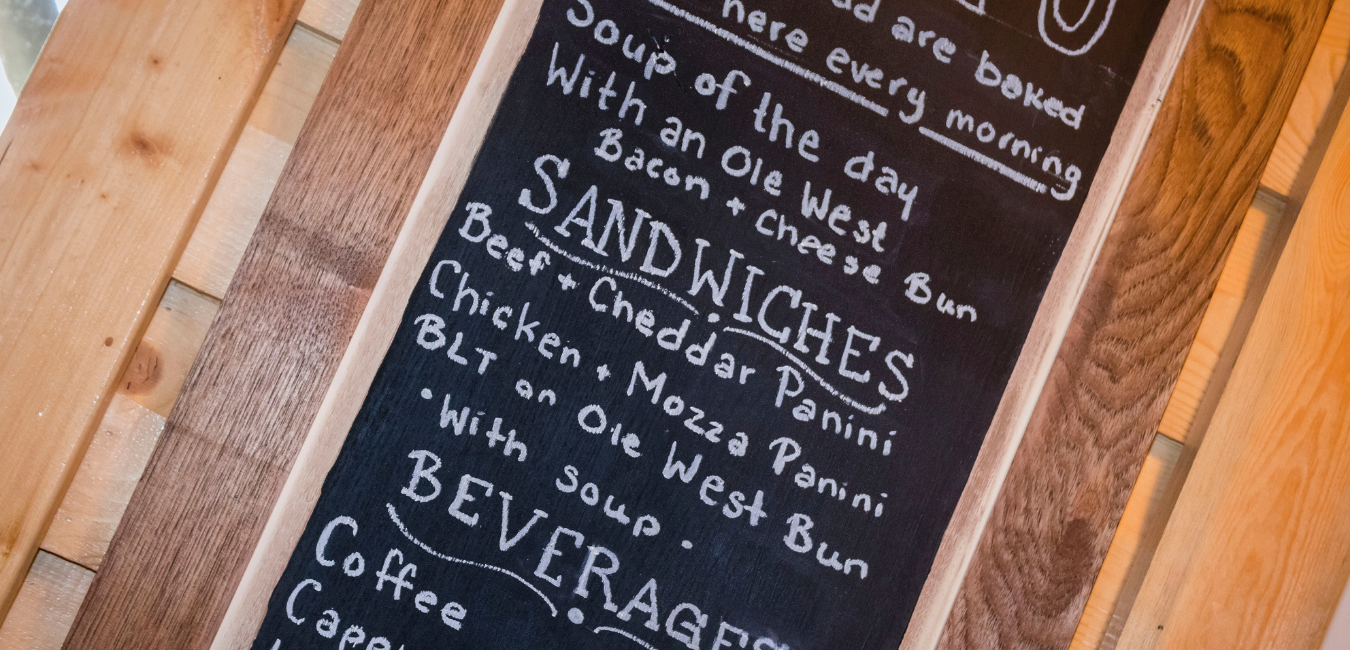 are baked
here every morning
Soup of the day
With an Ole West
Bacon + Cheese Bun
SANDWICHES
Beef + Cheddar Panini
Chicken + Mozza Panini
BLT on Ole West Bun
• With soup •
BEVERAGES
Coffee